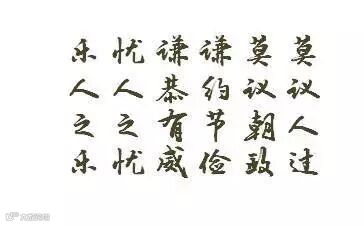 莫议人过
莫议朝政
谦约节俭
谦恭有威
忧人之忧
乐人之乐